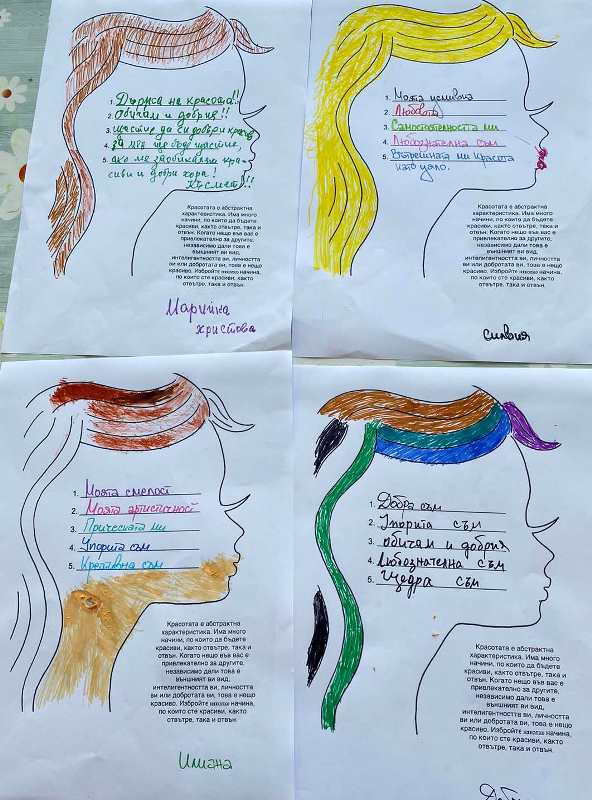 1. Държа на красота!!
2. Обичам и добрия!!
3. щастие да си добър и красив
4. За мен ще бъде щастие,
5. ако ме заобикалят кра-
сиви и добри хора!
Късмет!!!
Красотата е абстрактна
характеристика. Има много
начини, по които да бъдете
красиви, както отвътре, така и
отвън. Когато нещо във вас е
привлекателно за другите,
независимо дали това е
външният ви вид,
интелигентността ви, личността
ви или добротата ви, това е нещо
красиво. Избройте няколко начина,
по които сте красиви, както
отвътре, така и отвън.
Марийка
Христова
1. Моята усмивка
2. Любовта
3. Самостоятелността ми
4. Любознателна съм
5. Вътрешната ми красота
като цяло.
Красотата е абстрактна
характеристика. Има много
начини, по които да бъдете
красиви, както отвътре, така и
отвън. Когато нещо във вас е
привлекателно за другите,
независимо дали това е
външният ви вид,
интелигентността ви, личността
ви или добротата ви, това е нещо
красиво. Избройте няколко начина,
по които сте красиви, както
отвътре, така и отвън.
Силвия
1. Моята смелост
2. Моята артистичност
3. Прическата ми
4. Упорита съм
5. Креативна съм
Красотата е абстрактна
характеристика. Има много
начини, по които да бъдете
красиви, както отвътре, така и
отвън. Когато нещо във вас е
привлекателно за другите,
независимо дали това е
външният ви вид,
интелигентността ви, личността
ви или добротата ви, това е нещо
красиво. Избройте няколко начина,
по които сте красиви, както
отвътре, така и отвън.
Илиана
1. Добра съм
2. Упорита съм
3. обичам и добрия
4. Любознателна съм
5. Щедра съм
Красотата е абстрактна
характеристика. Има много
начини, по които да бъдете
красиви, както отвътре, така и
отвън. Когато нещо във вас е
привлекателно за другите,
независимо дали това е
външният ви вид,
интелигентността ви, личността
ви или добротата ви, това е нещо
красиво. Избройте няколко начина,
по които сте красиви, както
отвътре, така и отвън.